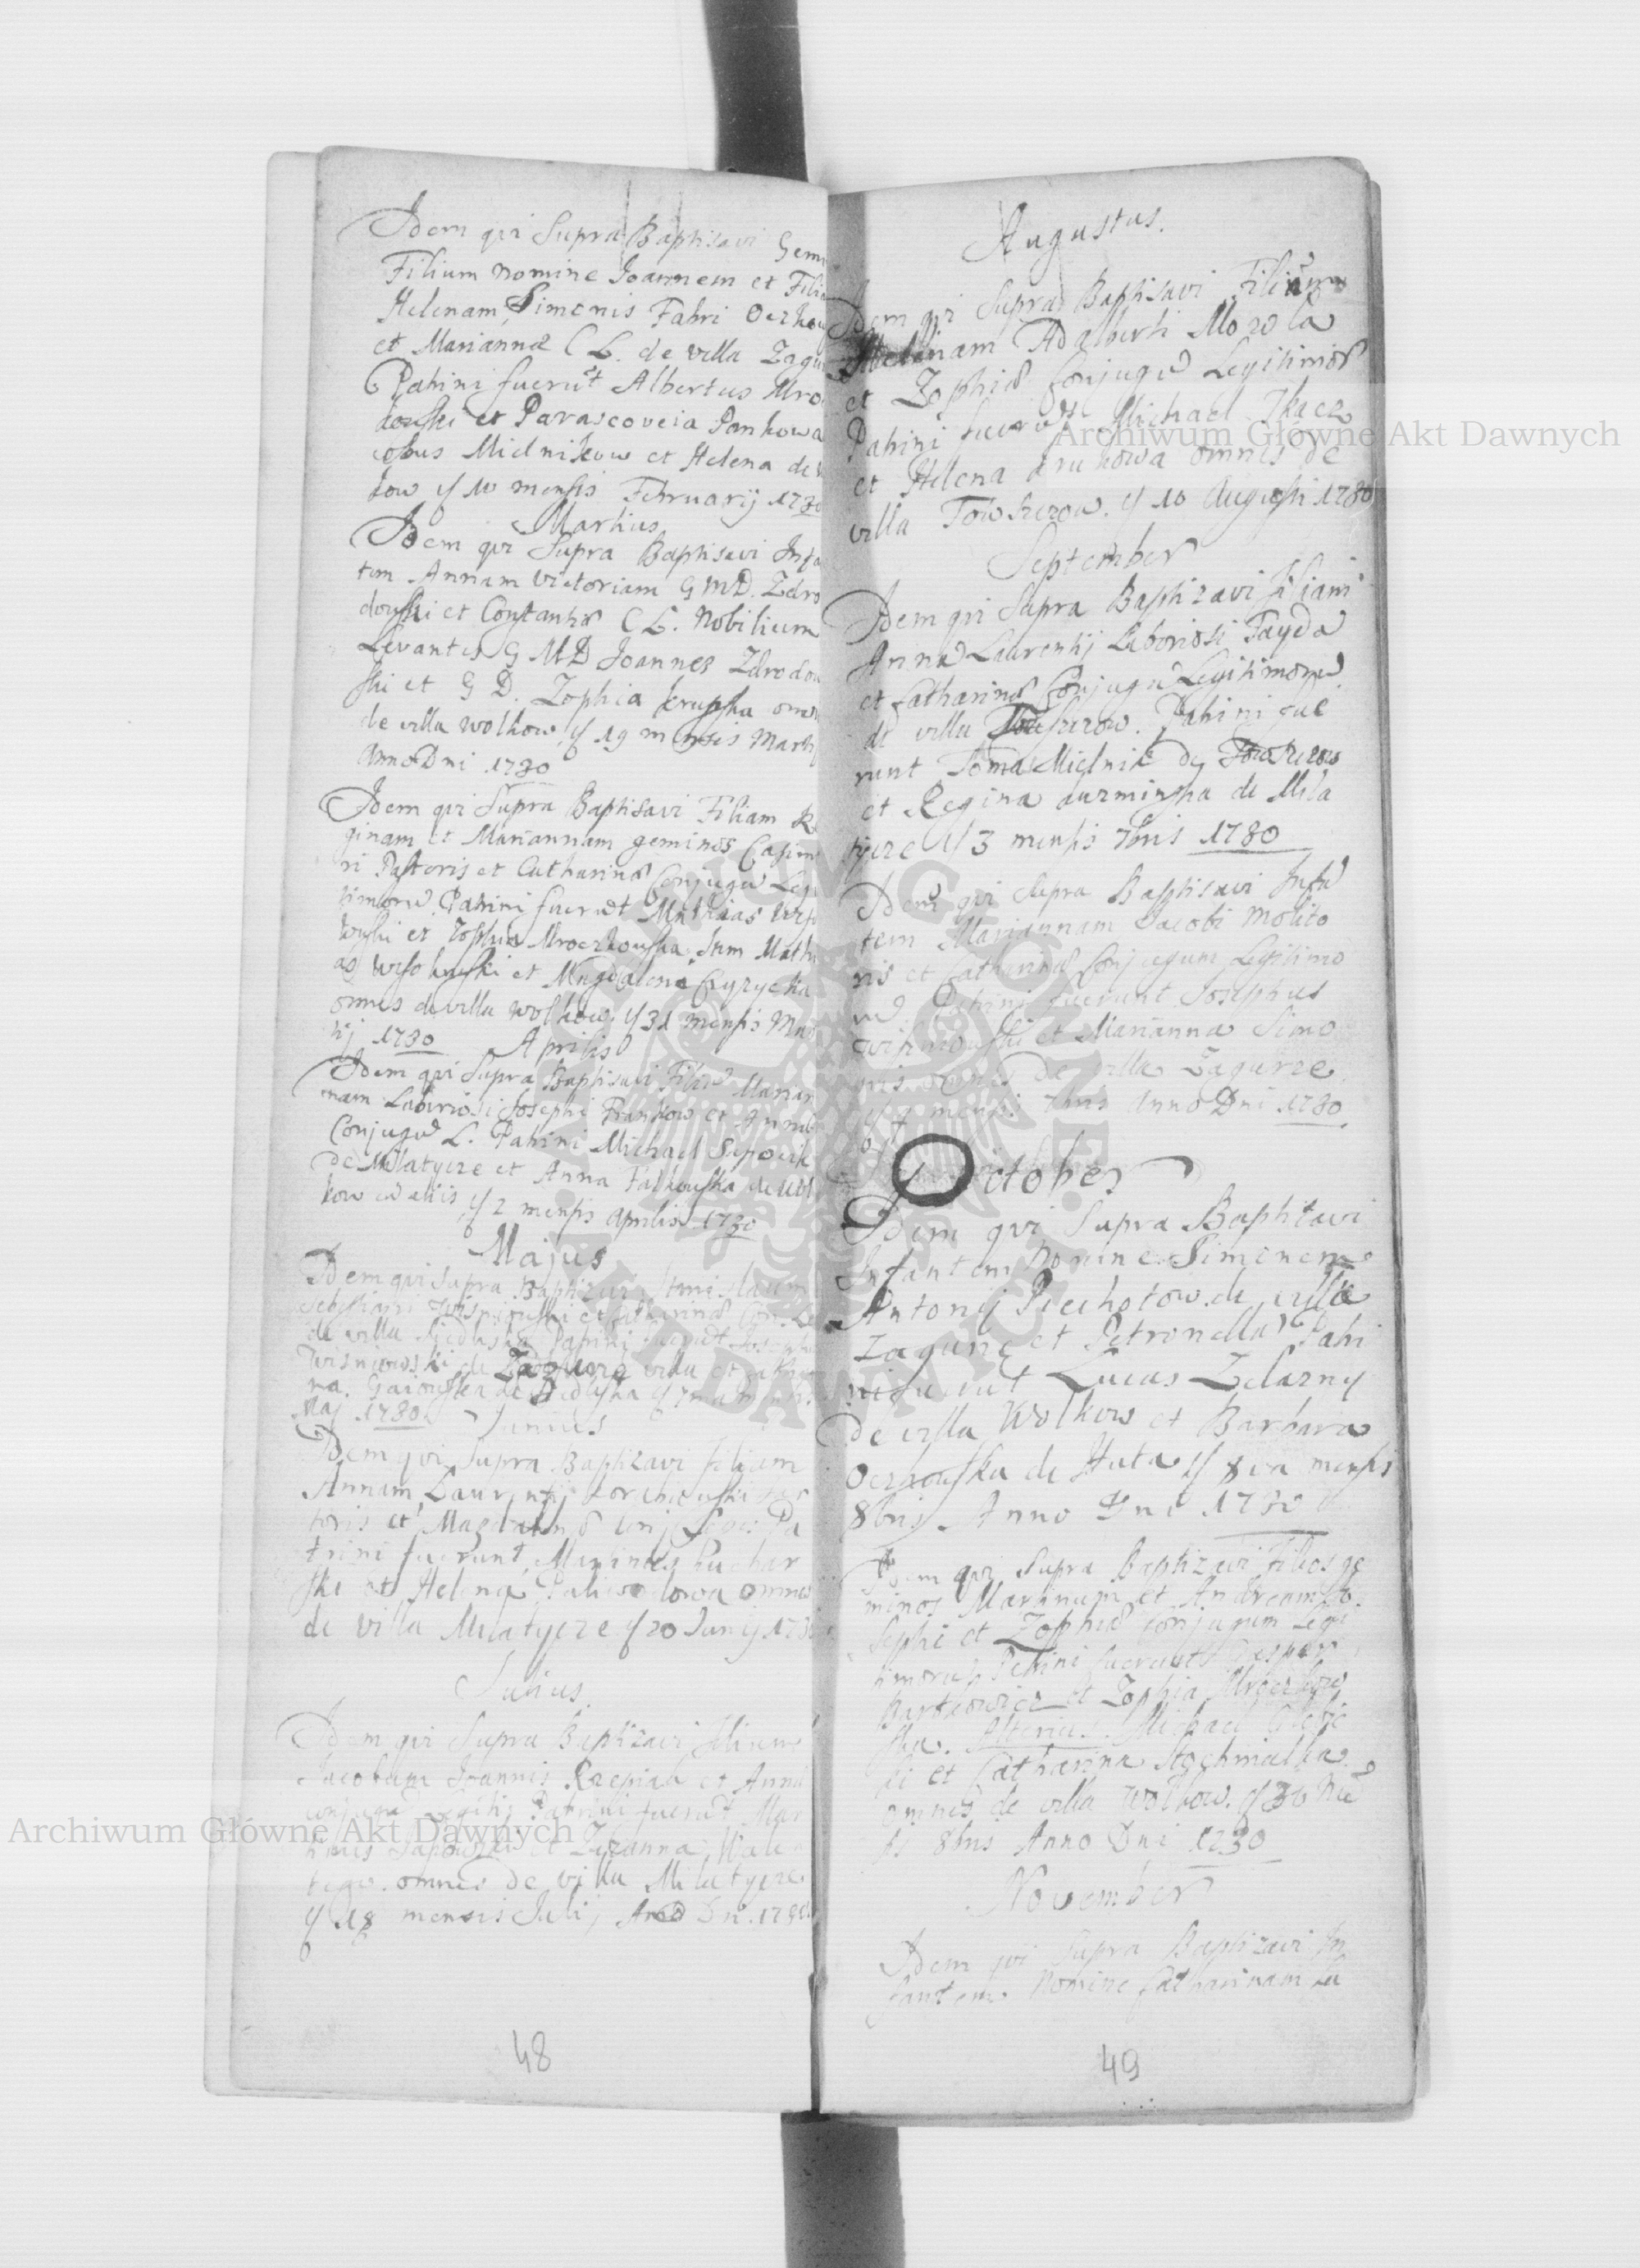 Idem qui Supra Baptisavi Gemi
Filium nomine Joannem et Filia
Helenam, Simonis Fabri Oczkow
et Mariannæ C L. de villa Zagu
Patrini fuerūt Albertus Mro
kowski et Parascoveia Pankowa
cobus Mielnikow et Helena de
kow y 10 mensis Februarij 1730
Martius
Idem qvi Supra Baptisavi Infa
tem Annam Victoriam G M D. Zdro
dowski et Constantiæ C L. Nobilium
Levantes G M D Joannes Zdrodow
ski et G D. Zophia Krupska omn
de villa Wolkow, y 19 mensis Martij
Anno Dni 1730
Idem qvi Supra Baptisavi Filiam Re
ginam et Mariannam geminos Casimi
ri Pastoris et Catharinæ Conjugū Legi
timorū. Patrini fuerūt Mathias
et Zophia Mroczkowska. Item Mathi
as et Magdalena
omnes de villa Wolkow. y 31 mensis Mar
tij 1730 Aprilis
Idem qvi Supra Baptisavi Filiā Marian
nam Laboriosi Josephi Frankow et Annæ
Conjugū L. Patrini Michael
de Milatycze et Anna Falkowska de Wol
kow y 2 mensis Aprilis 1730
Majus
Idem qvi Supra Baptizavi
et Catharinæ Con. Le
de villa Patrini fuerūt Joseph
Wisniowski de Zagurze villa et
na. Gaiowska de y 7ma men.
Maj 1730. Junius
Idem qvi Supra Baptizavi filiam
Annam, Laurentij
toris et Magdalenæ Conj Legi: Pa
trini fuerunt, Martinus Kuchar
ski et Helena omnes
de villa Milatycze y 20 Junij 173
Julius.
Idem qvi Supra Baptizavi filium
Jacobum Joannis Rzepiak et Annæ
conjugū Legiti: Patrini fuerūt Mar
tinus et Zuzanna
omnes de villa Milatycze
y 18 mensis Julij Ano Dn. 17
48
Augustus.
Idem qvi Supra Baptisavi Filiam
Helenam Adalberti Mozola
et Zophiæ Conjugū Legitimor
Patrini fuerūt Michael Tkacz
et Helena omnes de
villa Towszczow. y 10 Augusti 1730
September
Idem qvi Supra Baptizavi Filiam
Annā Laurentij Laboriosi Fayda
et Catharinæ Conjugū Legitimorū
de villa Towszczow. Patrini fue
runt Toma Mielnik de Towszczow
et Regina de Mila
tycze y 3 mensis 7bris 1730
Idem qvi Supra Baptisavi Infā
tem Mariannam Jacobi Molito
ris et Catharinæ Conjugum Legitimo
rū Patrini fuerunt Josephus
Wisniowski et Marianna Simo
nis omnes de villa Zagurze
y 9 mensis 7bris Anno Dni 1730
October
Idem qvi Supra Baptitavi
Infantem Nomine Simonem
Antonij Piechotow. de villa
Zagurze et Petronella Patri
ni fuerūt Lucas Zelazny
de villa Wolkow et Barbara
Oczkowska de Huta y 8va mensis
8bris Anno Dni 1730
Idem qvi Supra Baptizavi Filios ge
minos Martinum et Andream Jo
sephi et Zophiæ Conjugum Legi
timorū Patrini fuerunt Casper
Bartkowicz et Zophia Mroczkow
ska. Alterius. Michael
et Catharina Stochmalka.
omnes de villa Wolkow. y 30 Mē
sis 8bris Anno Dni 1730
November
Idem qvi Supra Baptizavi In
fantem Nomine Catharinam La
49
Archiwum Główne Akt Dawnych
Archiwum Główne Akt Dawnych
ARCHIWUM GŁÓWNE AKT DAWNYCH